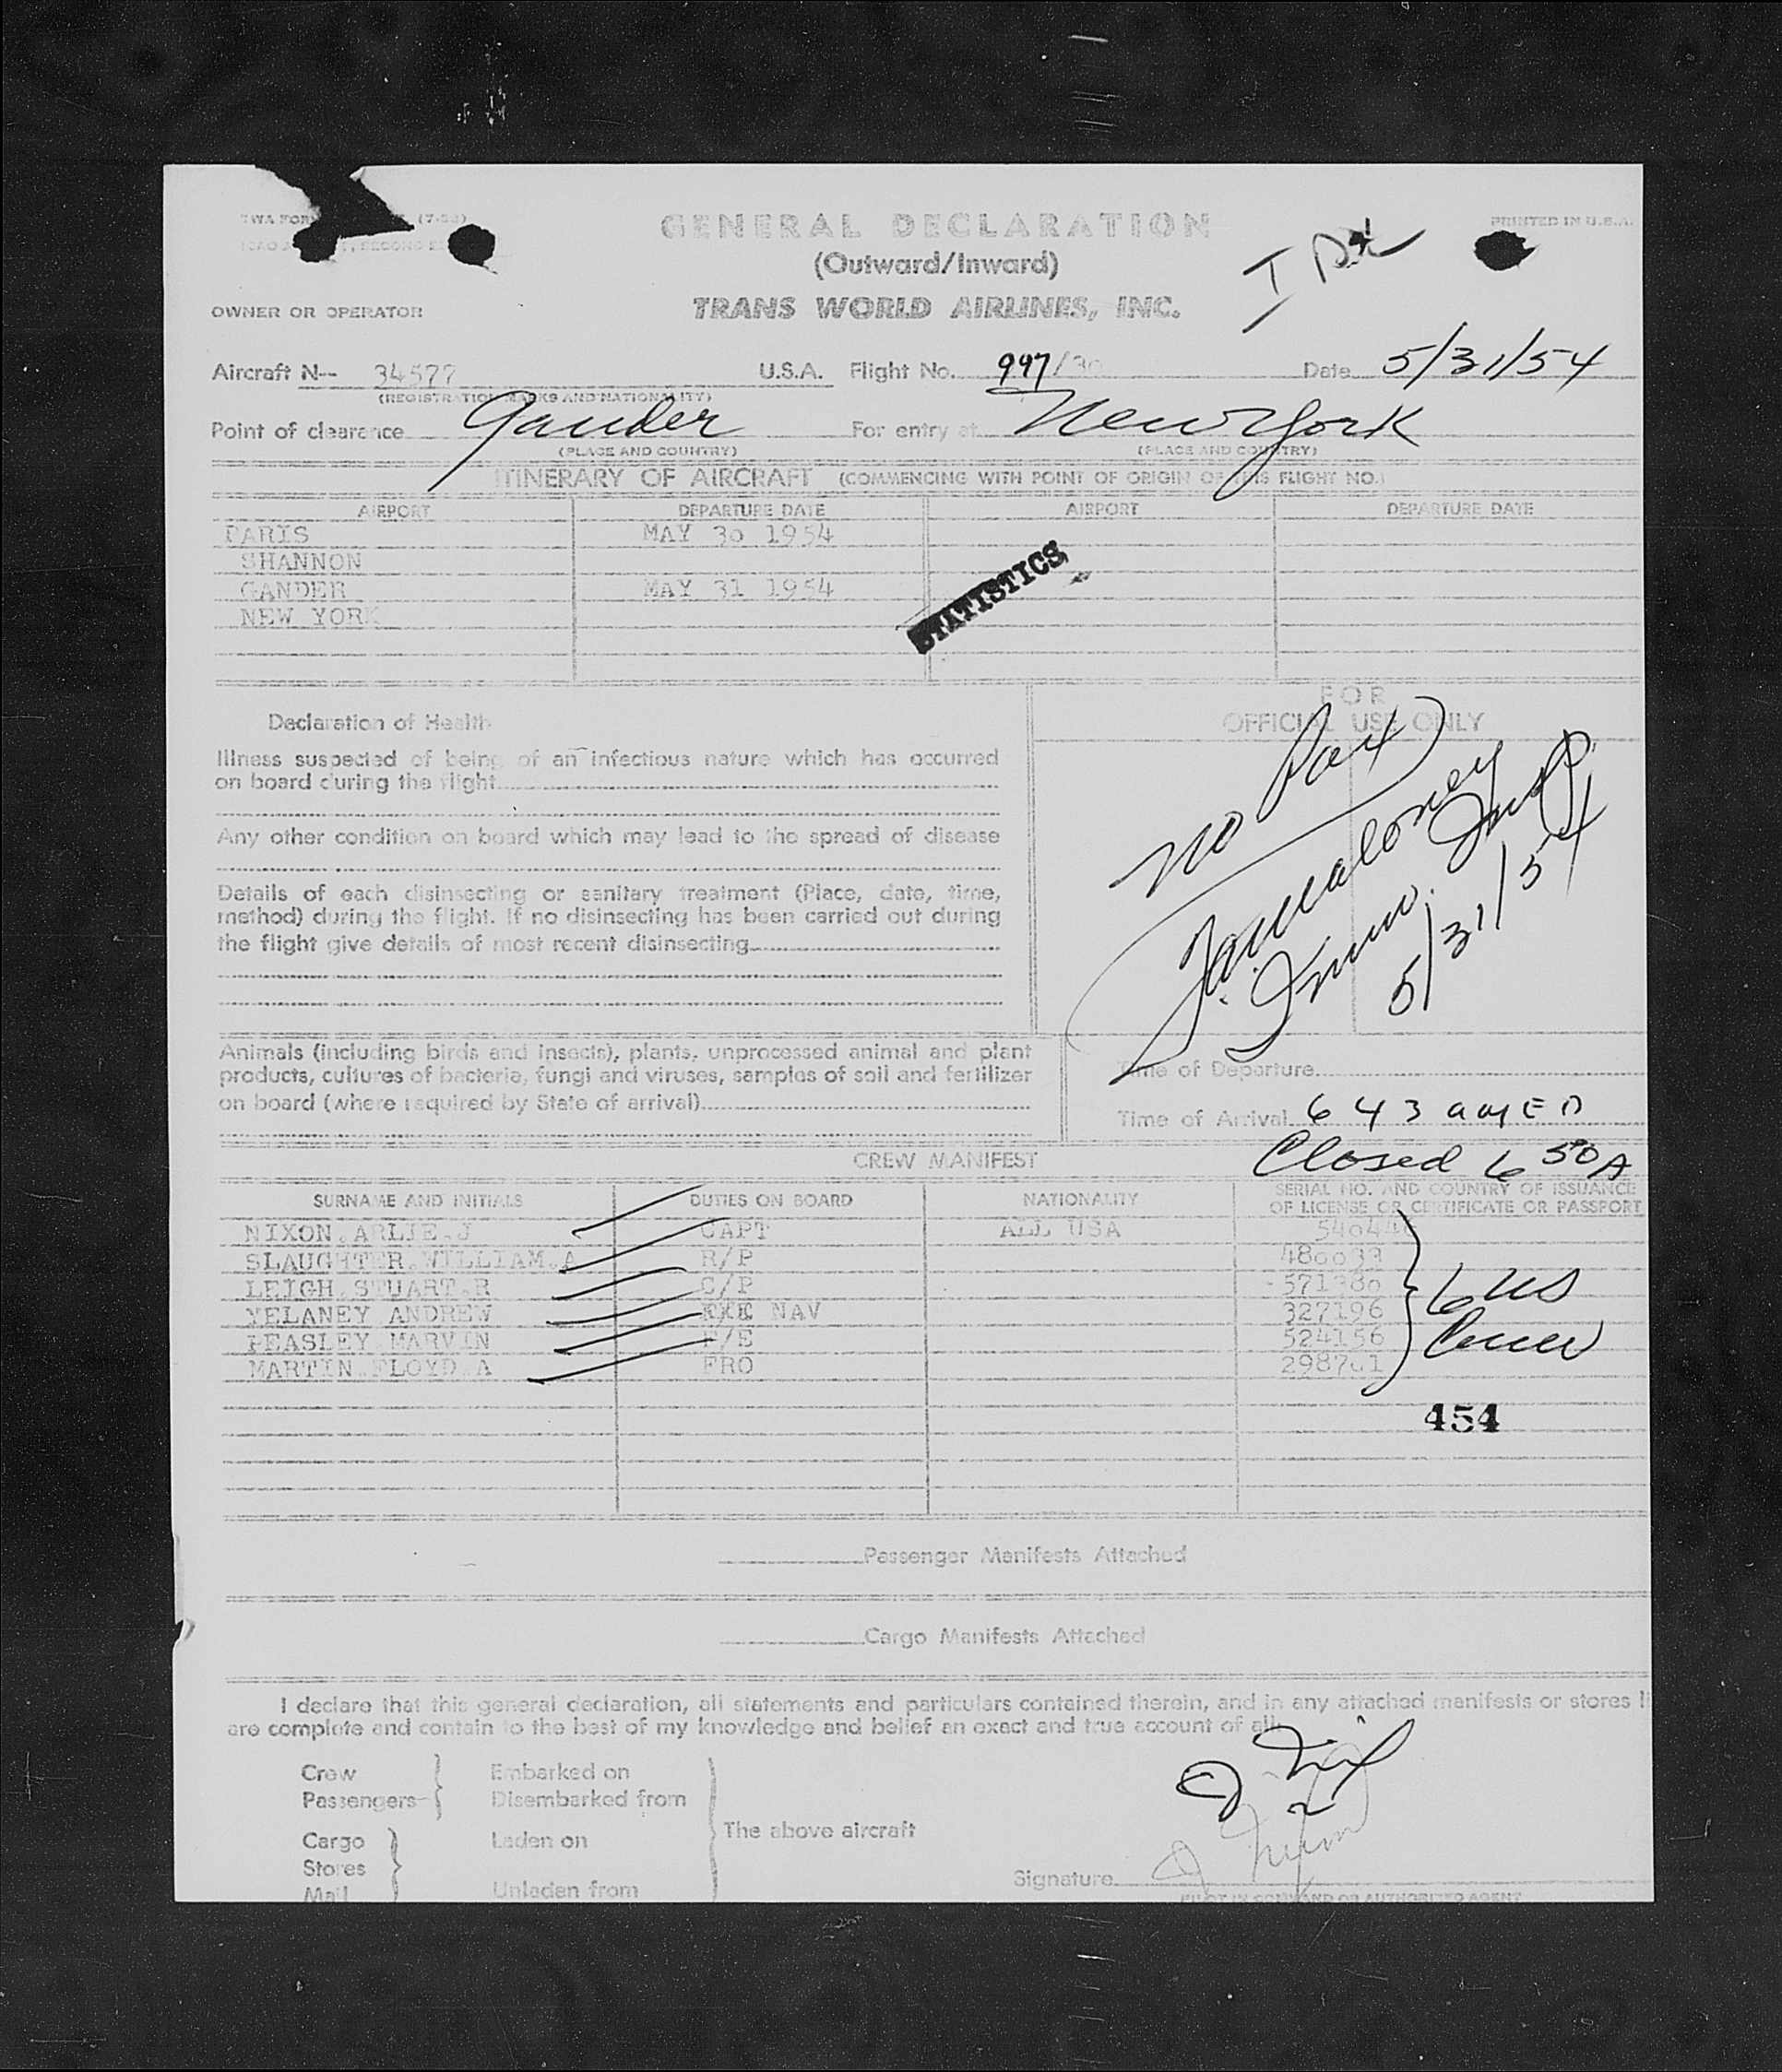 TWA FOR (7-53)
PRINTED IN U.S.A.
GENERAL DECLARATION
(Outward/Inward)
OWNER OR OPERATOR
TRANS WORLD AIRLINES, INC.
Aircraft N-- 34577 U.S.A. Flight No. 997/30 Date 5/31/54
(REGISTRATION MARKS AND NATIONALITY)
Point of clearance Gander For entry at New York
(PLACE AND COUNTRY) (PLACE AND COUNTRY)
ITINERARY OF AIRCRAFT (COMMENCING WITH POINT OF ORIGIN OF THIS FLIGHT NO.)
AIRPORT DEPARTURE DATE AIRPORT DEPARTURE DATE
PARIS MAY 30 1954
SHANNON
GANDER MAY 31 1954
NEW YORK
STATISTICS
FOR
OFFICIAL USE ONLY
Declaration of Health
Illness suspected of being of an infectious nature which has occurred
on board during the flight
Any other condition on board which may lead to the spread of disease
Details of each disinsecting or sanitary treatment (Place, date, time,
method) during the flight. If no disinsecting has been carried out during
the flight give details of most recent disinsecting
no Pax
Immw. Insp.
5/31/54
Animals (including birds and insects), plants, unprocessed animal and plant
products, cultures of bacteria, fungi and viruses, samples of soil and fertilizer
on board (where required by State of arrival)
Time of Departure
Time of Arrival 6 43 am E D
Closed 6 50 A
CREW MANIFEST
SURNAME AND INITIALS DUTIES ON BOARD NATIONALITY SERIAL NO. AND COUNTRY OF ISSUANCE
OF LICENSE OR CERTIFICATE OR PASSPORT
NIXON.ARLIE.J CAPT ALL USA
SLAUGHTER.WILLIAM.A R/P 480033
LEIGH.STUART.R C/P
ANDREW NAV 327196
MARVIN F/E 524156
MARTIN.FLOYD.A FRO 298761
6 US
Crew
454
Passenger Manifests Attached
Cargo Manifests Attached
I declare that this general declaration, all statements and particulars contained therein, and in any attached manifests or stores li
are complete and contain to the best of my knowledge and belief an exact and true account of all:
Crew Embarked on
Passengers Disembarked from
The above aircraft
Cargo Laden on
Stores
Mail Unladen from
Signature
PILOT IN COMMAND OR AUTHORIZED AGENT